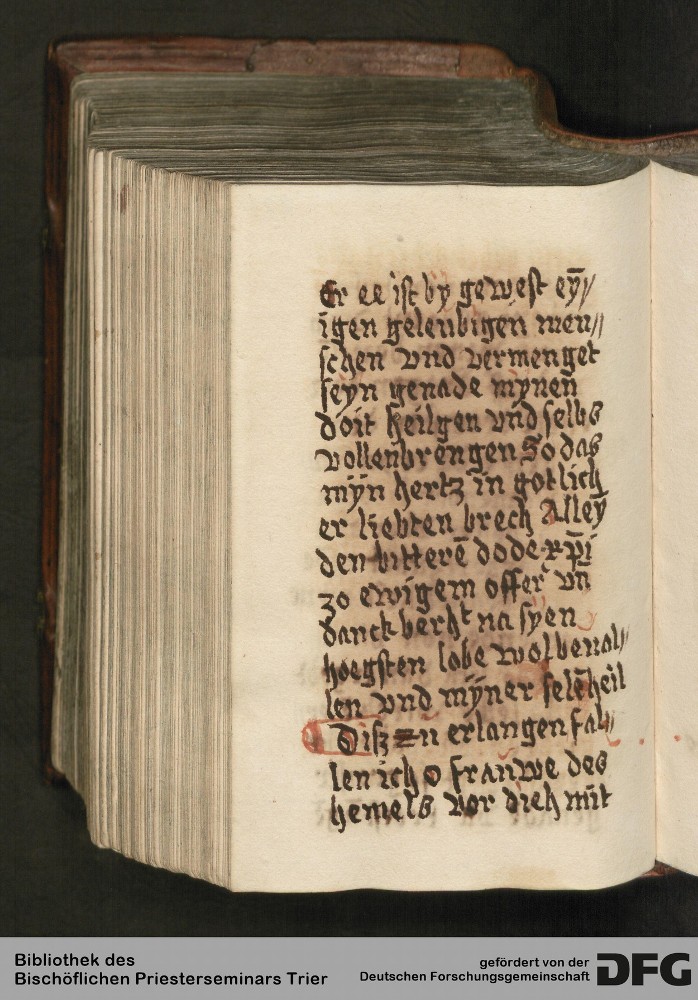 Er ee ist by gewest eyn̄//
igen geleubigen men//
schen vnd vermenget
seyn genade mynen̄
doit heilgen vnd selbs
vollenbrengen So das
mȳn hertz in gotlich
er liebten brech Alleȳ
den bitterē dode xp̄i
zo ewigem offer vn̄
danckberht na syen
hoegsten lobe wolbenal//
len vnd mȳner selēheil
Disz zu erlangen fal//
len ich o frauwe des
hemels vor dich mit
Bibliothek des
Bischöflichen Priesterseminars Trier
gefördert von der
Deutschen Forschungsgemeinschaft
DFG